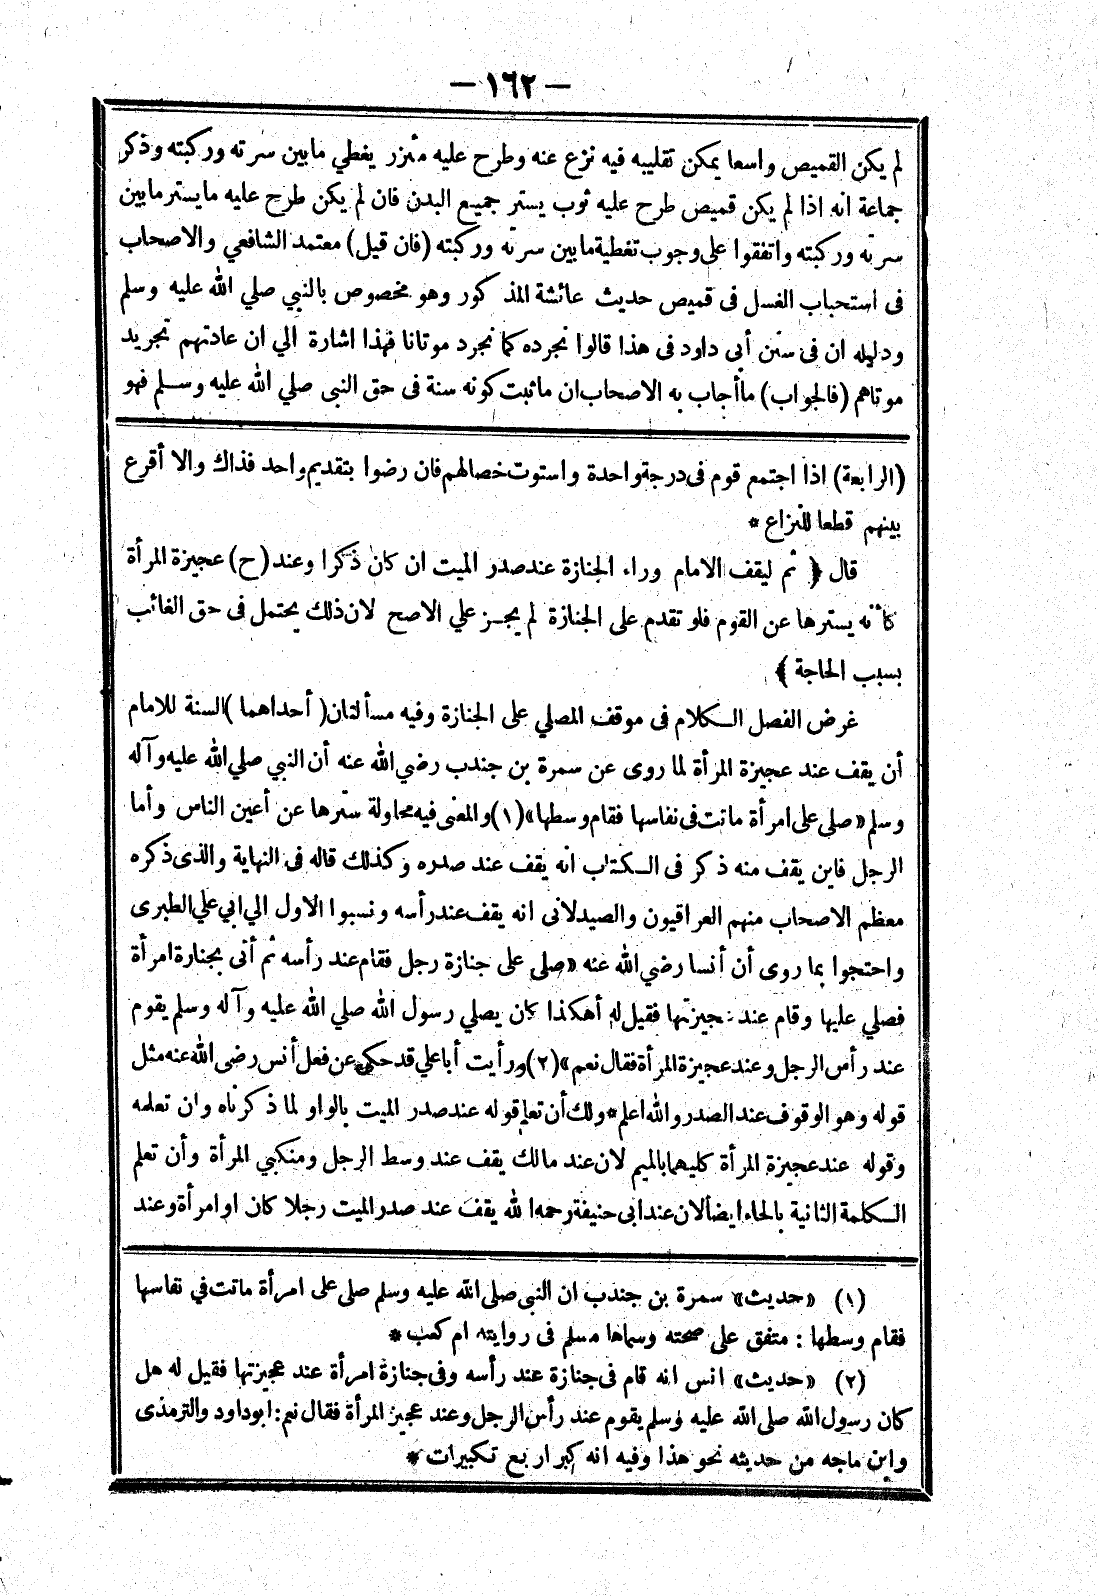 — ١٦٢ —
لم يكن القميص واسعا يمكن تقليبه فيه نزع عنه وطرح عليه مئزر يغطي مابين سرته وركبته وذكر
جماعة انه اذا لم يكن قميص طرح عليه ثوب يستر جميع البدن فان لم يكن طرح عليه مايستر مابين
سرته وركبته واتفقوا على وجوب تغطية مابين سرته وركبته (فان قيل) معتمد الشافعي والاصحاب
فى استحباب الغسل فى قميص حديث عائشة المذكور وهو مخصوص بالنبي صلي الله عليه وسلم
ودليله ان فى سنن أبي داود فى هذا قالوا نجرده كما نجرد موتانا فهذا اشارة الي ان عادتهم تجريد
موتاهم (فالجواب) ماأجاب به الاصحاب ان ماثبت كونه سنة فى حق النبى صلي الله عليه وسلم فهو
(الرابعة) اذا اجتمع قوم فى درجة واحدة واستوت خصالهم فان رضوا بتقديم واحد فذاك والا أقرع
بينهم قطعا للنزاع *
قال ﴿ ثم ليقف الامام وراء الجنازة عند صدر الميت ان كان ذكرا وعند (ح) عجيزة المرأة
كأنه يسترها عن القوم فلو تقدم على الجنازة لم يجز علي الاصح لان ذلك يحتمل فى حق الغائب
بسبب الحاجة ﴾
غرض الفصل الكلام فى موقف المصلي على الجنازة وفيه مسألتان (أحداهما) السنة للامام
أن يقف عند عجيزة المرأة لما روى عن سمرة بن جندب رضي الله عنه أن النبي صلي الله عليه وآله
وسلم «صلى على امرأة ماتت فى نفاسها فقام وسطها» (١) والمعنى فيه محاولة سترها عن أعين الناس وأما
الرجل فاين يقف منه ذكر فى الكتاب انه يقف عند صدره وكذلك قاله فى النهاية والذى ذكره
معظم الاصحاب منهم العراقيون والصيدلانى انه يقف عند رأسه ونسبوا الاول الي ابي علي الطبرى
واحتجوا بما روى أن أنسا رضي الله عنه «صلى على جنازة رجل فقام عند رأسه ثم أتى بجنازة امرأة
فصلي عليها وقام عند عجيزتها فقيل له أهكذا كان يصلي رسول الله صلي الله عليه وآله وسلم يقوم
عند رأس الرجل وعند عجيزة المرأة فقال نعم» (٢) ورأيت أبا علي قد حكي عن فعل أنس رضى الله عنه مثل
قوله وهو الوقوف عند الصدر والله اعلم * ولك أن تعلم قوله عند صدر الميت بالواو لما ذكرناه وان تعلمه
وقوله عند عجيزة المرأة كليهما بالميم لان عند مالك يقف عند وسط الرجل ومنكبي المرأة وأن تعلم
الكلمة الثانية بالحاء ايضا لان عند ابى حنيفة رحمه الله يقف عند صدر الميت رجلا كان او امرأة وعند
(١) «حديث» سمرة بن جندب ان النبى صلى الله عليه وسلم صلى على امرأة ماتت في نفاسها
فقام وسطها : متفق على صحته وسماها مسلم فى روايته ام كعب *
(٢) «حديث» انس انه قام فى جنازة عند رأسه وفى جنازة امرأة عند عجيزتها فقيل له هل
كان رسول الله صلى الله عليه وسلم يقوم عند رأس الرجل وعند عجيز المرأة فقال نعم : ابو داود والترمذى
وابن ماجه من حديثه نحو هذا وفيه انه كبر اربع تكبيرات *